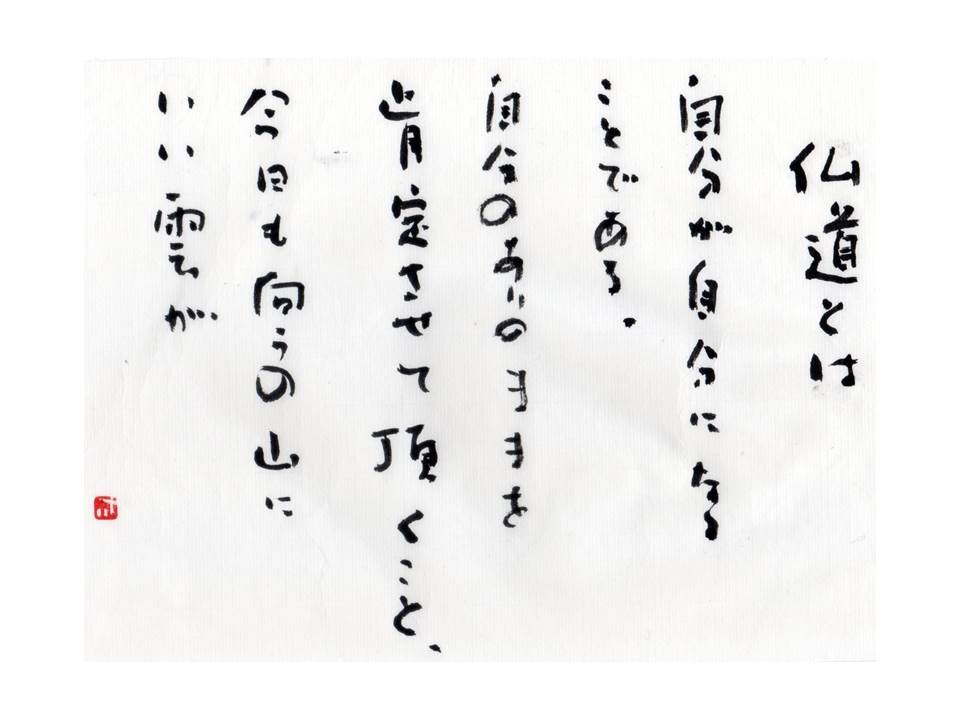 仏道とは
自分が自分になる
ことである。
自分のありのままを
肯定させて頂くこと、
今日も向うの山に
いい雲が